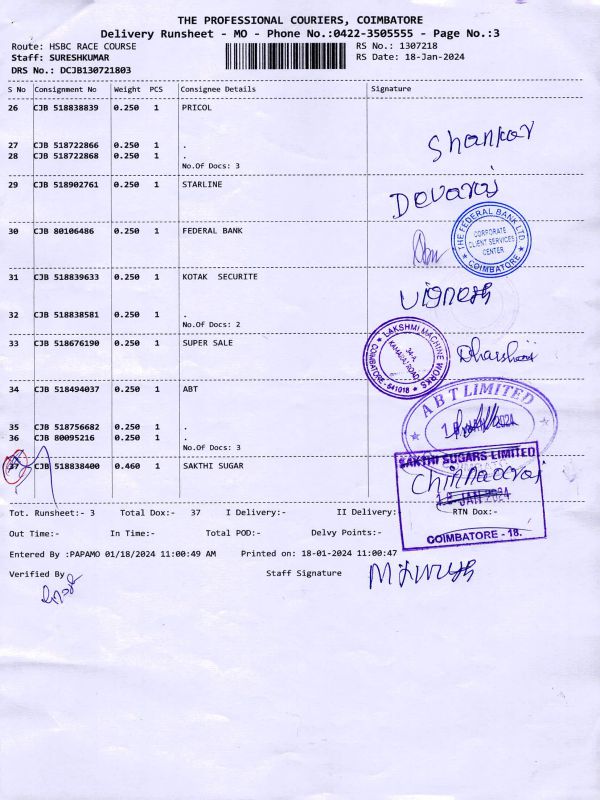 THE PROFESSIONAL COURIERS, COIMBATORE
Delivery Runsheet - MO - Phone No.:0422-3505555 - Page No.:3
Route: HSBC RACE COURSE
RS No.: 1307218
Staff: SURESHKUMAR
RS Date: 18-Jan-2024
DRS No.: DCJB130721803
S No Consignment No Weight PCS Consignee Details Signature
26 CJB 518838839 0.250 1 PRICOL
27 CJB 518722866 0.250 1 .
28 CJB 518722868 0.250 1 .
No.Of Docs: 3
Shankar
29 CJB 518902761 0.250 1 STARLINE
Devaraj
30 CJB 80106486 0.250 1 FEDERAL BANK
THE FEDERAL BANK LTD.
CORPORATE
CLIENT SERVICES
CENTER
COIMBATORE
31 CJB 518839633 0.250 1 KOTAK SECURITE
Vignesh
32 CJB 518838581 0.250 1 .
No.Of Docs: 2
33 CJB 518676190 0.250 1 SUPER SALE
LAKSHMI MACHINE WORKS
34-A,
KAMARAJ ROAD
COIMBATORE - 641018
34 CJB 518494037 0.250 1 ABT
ABT LIMITED
35 CJB 518756682 0.250 1 .
36 CJB 80095216 0.250 1 .
No.Of Docs: 3
37 CJB 518838400 0.460 1 SAKTHI SUGAR
SAKTHI SUGARS LIMITED
Chinnadurai
18 JAN 2024
COIMBATORE - 18.
Tot. Runsheet:- 3 Total Dox:- 37 I Delivery:- II Delivery:- RTN Dox:-
Out Time:- In Time:- Total POD:- Delvy Points:-
Entered By :PAPAMO 01/18/2024 11:00:49 AM Printed on: 18-01-2024 11:00:47
Verified By Staff Signature